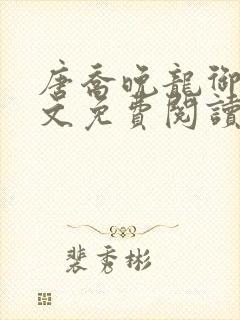 唐喬晚龍御
文免費閱讀
裴秀彬